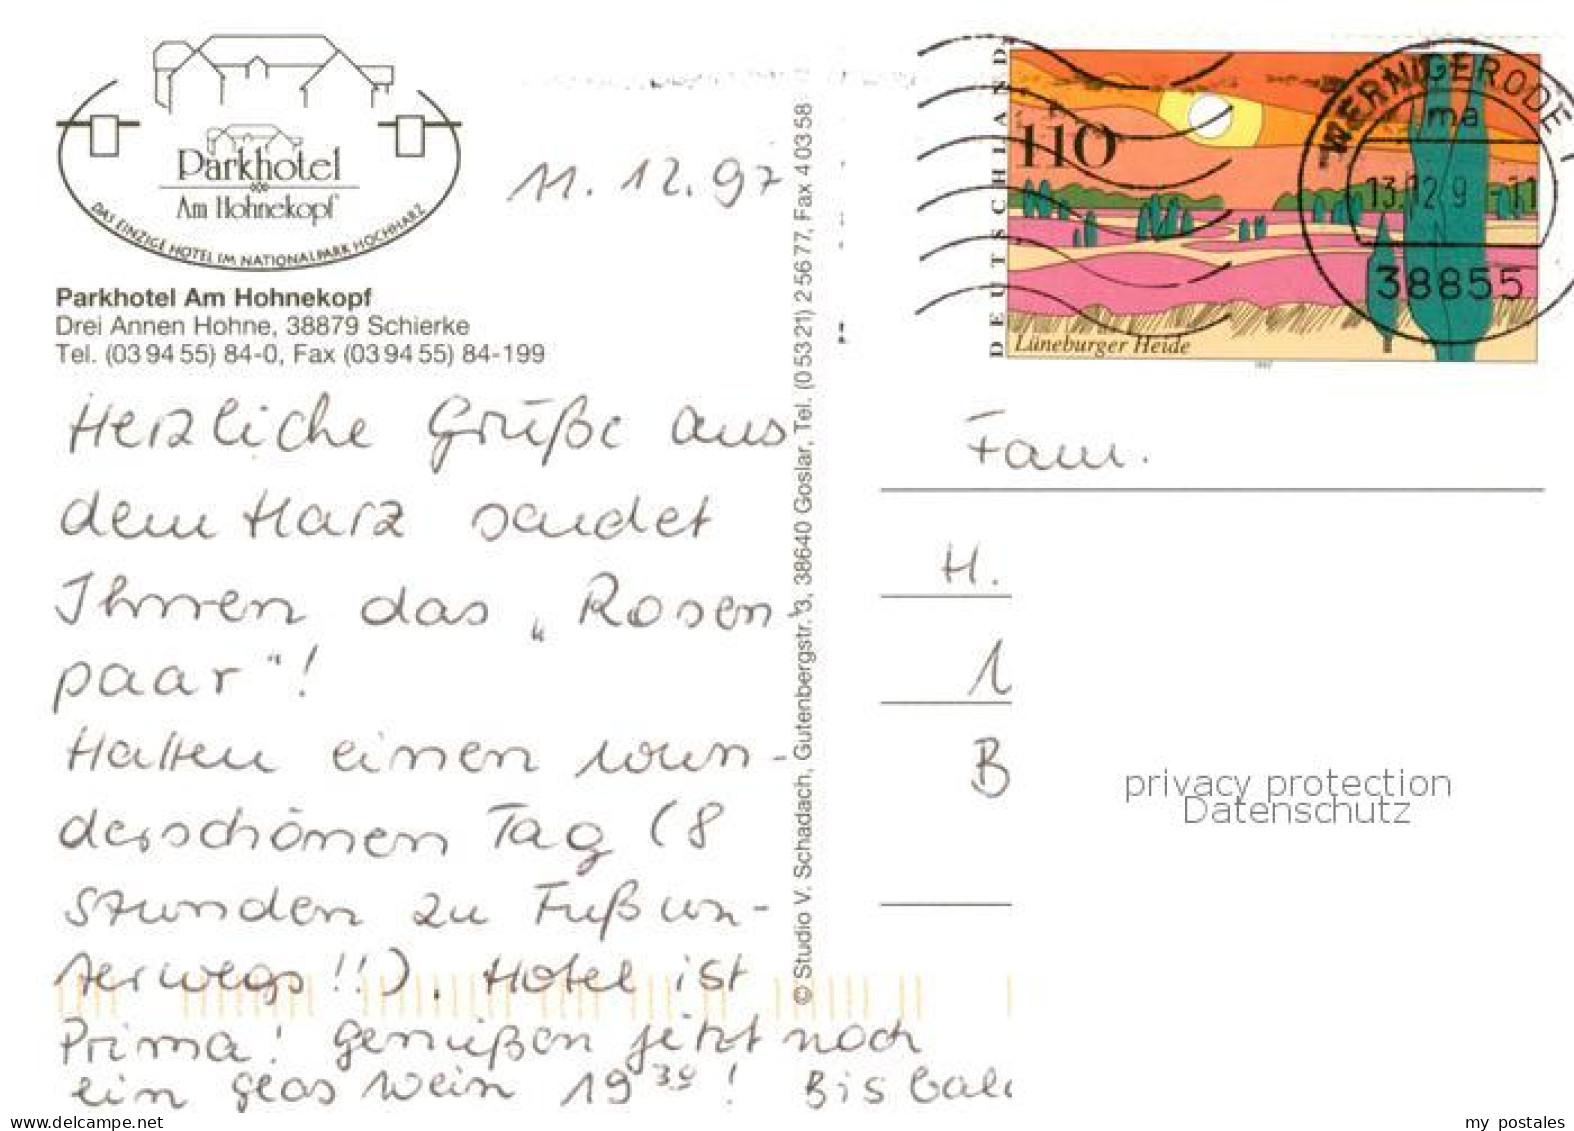 Parkhotel
Am Hohnekopf
DAS EINZIGE HOTEL IM NATIONALPARK HOCHHARZ
Parkhotel Am Hohnekopf
Drei Annen Hohne, 38879 Schierke
Tel. (03 94 55) 84-0, Fax (03 94 55) 84-199
11.12.97
Herzliche Grüße aus
dem Harz sendet
Ihnen das „Rosen-
paar"!
Hatten einen wun-
derschönen Tag (8
Stunden zu Fuß un-
terwegs!!). Hotel ist
Prima! Genießen jetzt noch
ein Glas Wein 19 30! Bis bald
© Studio V. Schadach, Gutenbergstr. 3, 38640 Goslar, Tel. (0 53 21) 2 56 77, Fax 4 03 58
DEUTSCHLAND
110
Lüneburger Heide
1997
WERNIGERODE 1
ma
13.12.9 -11
38855
Fam.
H.
1
B
privacy protection
Datenschutz
my postales